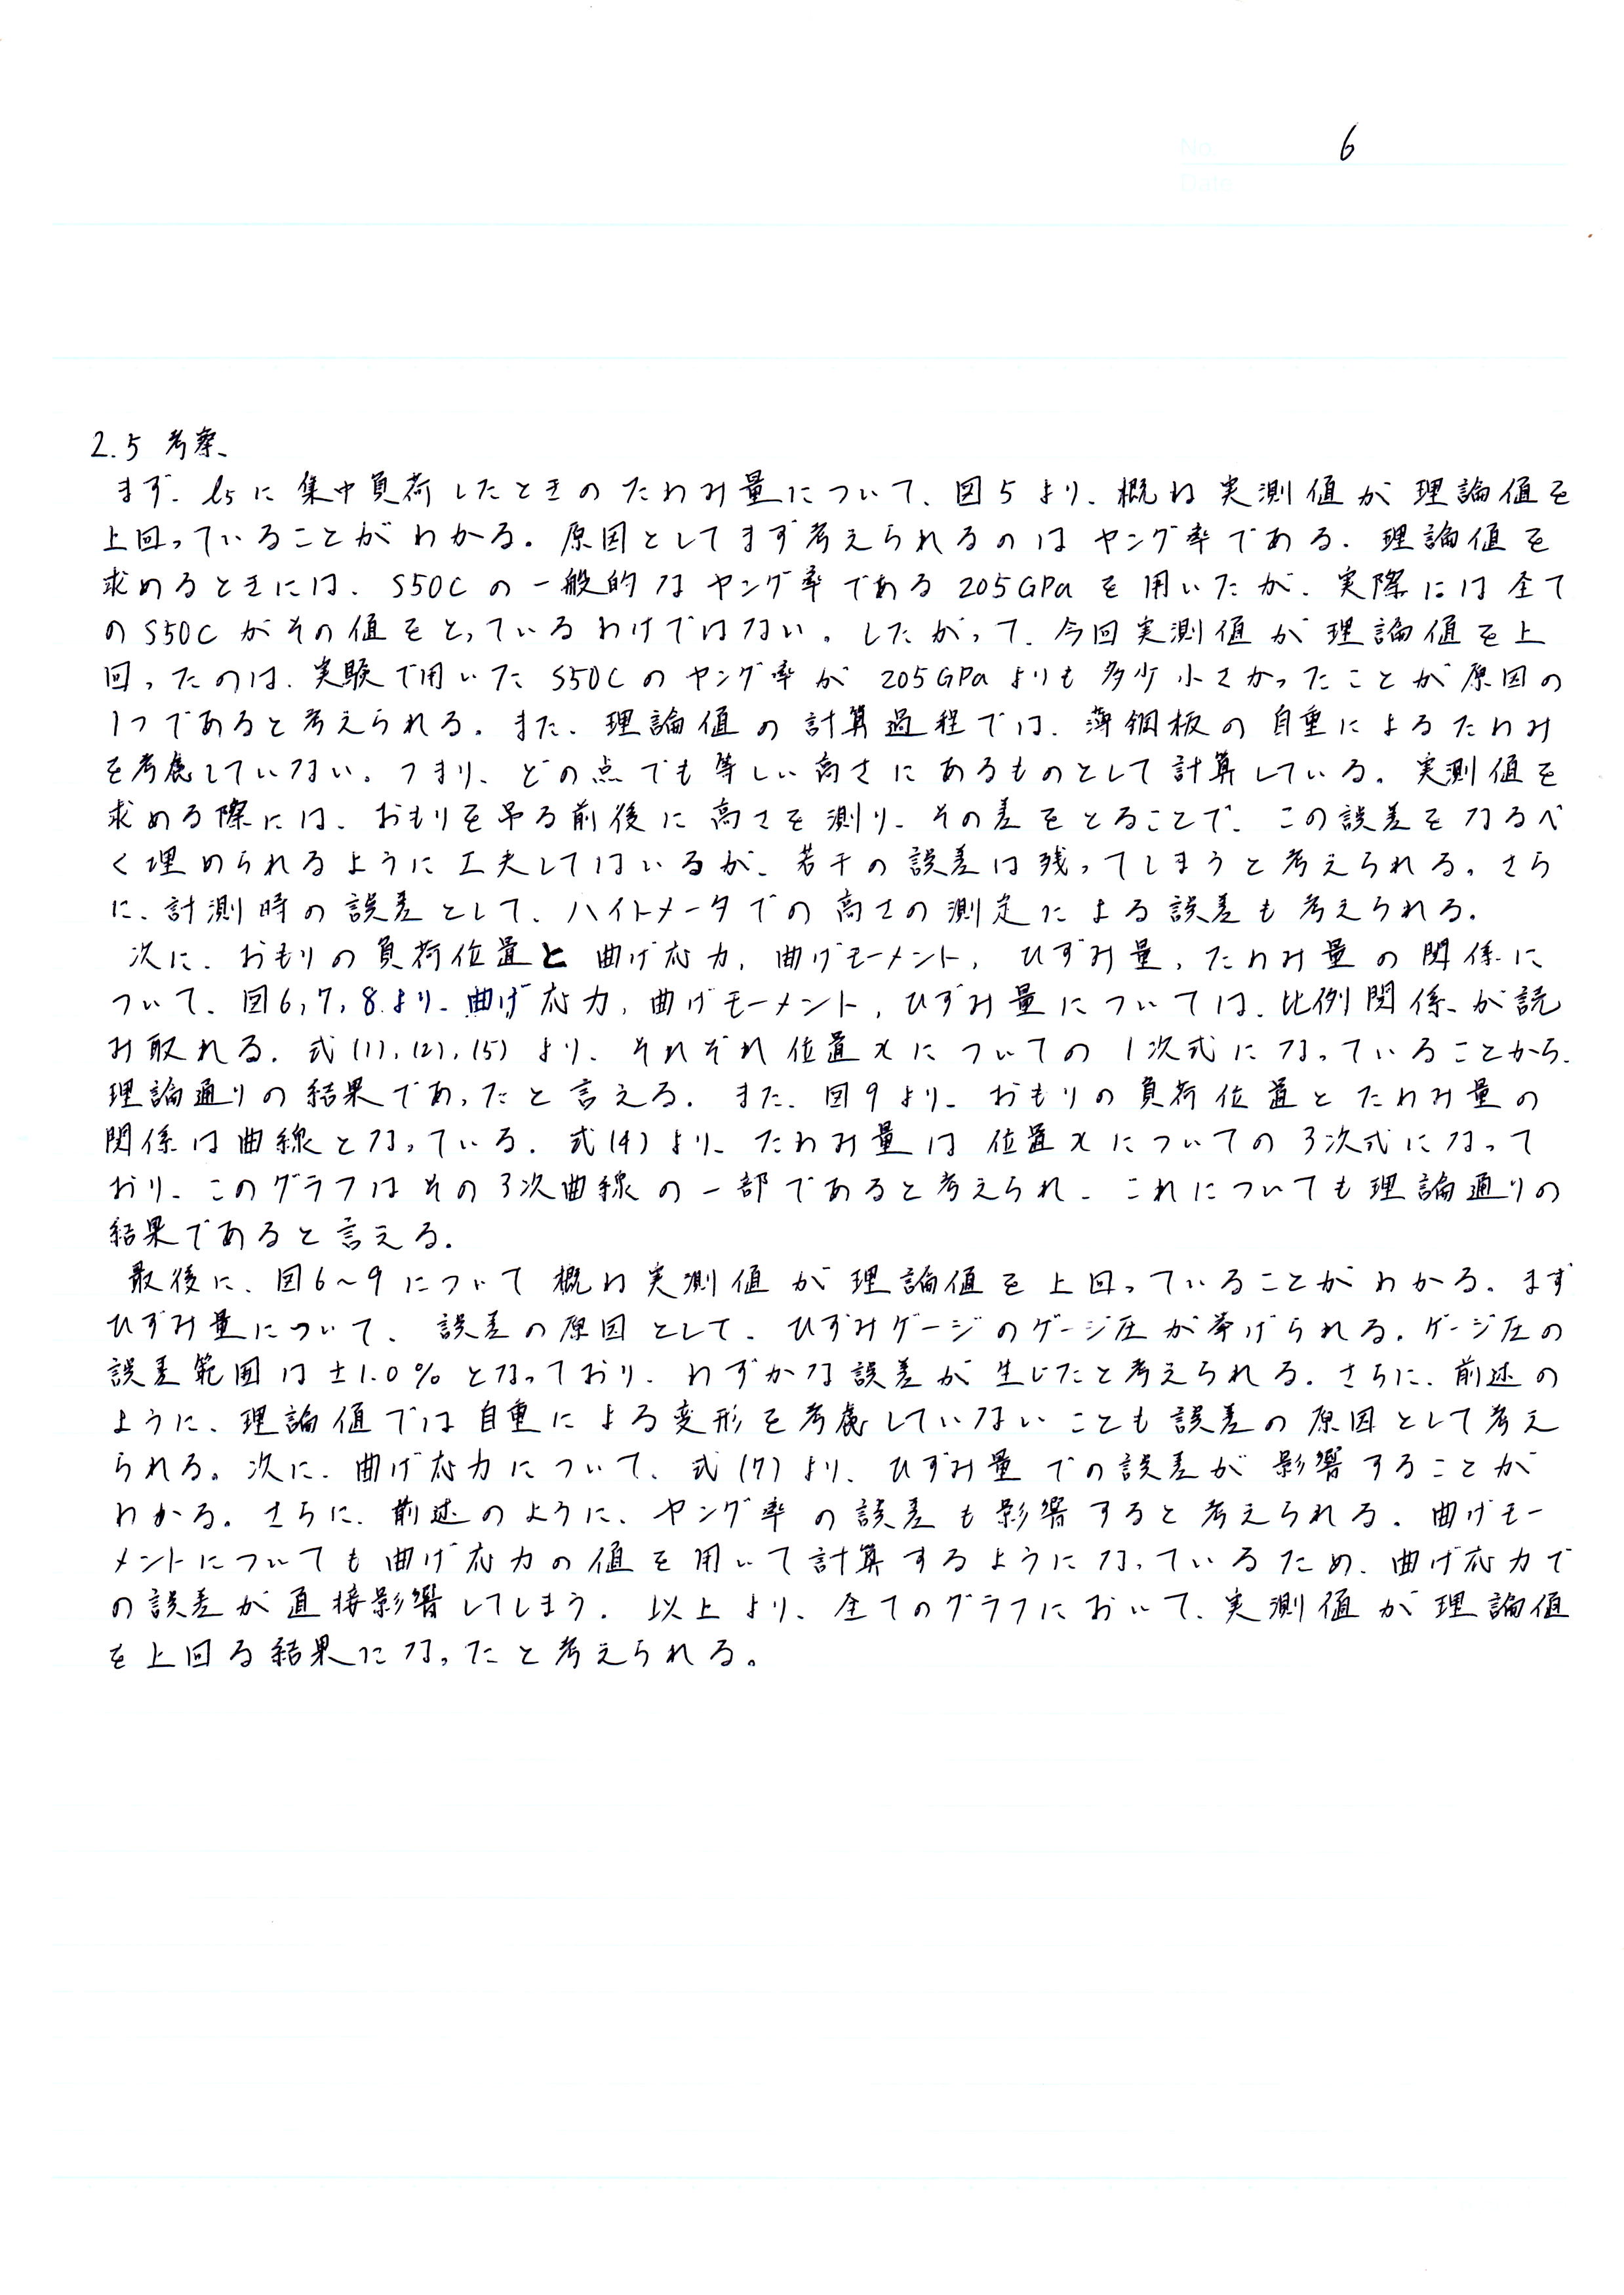 No. 6
Date
2.5 考察
まず、l5に集中負荷したときのたわみ量について、図5より、概ね実測値が理論値を
上回っていることがわかる。原因としてまず考えられるのはヤング率である。理論値を
求めるときには、S50Cの一般的なヤング率である205GPaを用いたが、実際には全て
のS50Cがその値をとっているわけではない。したがって、今回実測値が理論値を上
回ったのは、実験で用いたS50Cのヤング率が205GPaよりも多少小さかったことが原因の
1つであると考えられる。また、理論値の計算過程では、薄鋼板の自重によるたわみ
を考慮していない。つまり、どの点でも等しい高さにあるものとして計算している。実測値を
求める際には、おもりを吊る前後に高さを測り、その差をとることで、この誤差をなるべ
く埋められるように工夫してはいるが、若干の誤差は残ってしまうと考えられる。さら
に、計測時の誤差として、ハイトメータでの高さの測定による誤差も考えられる。
次に、おもりの負荷位置と曲げ応力,曲げモーメント,ひずみ量,たわみ量の関係に
ついて、図6,7,8より、曲げ応力,曲げモーメント,ひずみ量については、比例関係が読
み取れる。式(1),(2),(5)より、それぞれ位置xについての1次式になっていることから、
理論通りの結果であったと言える。また、図9より、おもりの負荷位置とたわみ量の
関係は曲線となっている。式(4)より、たわみ量は位置xについての3次式になって
おり、このグラフはその3次曲線の一部であると考えられ、これについても理論通りの
結果であると言える。
最後に、図6~9について概ね実測値が理論値を上回っていることがわかる。まず
ひずみ量について、誤差の原因として、ひずみゲージのゲージ圧が挙げられる。ゲージ圧の
誤差範囲は±1.0%となっており、わずかな誤差が生じたと考えられる。さらに、前述の
ように、理論値では自重による変形を考慮していないことも誤差の原因として考え
られる。次に、曲げ応力について、式(7)より、ひずみ量での誤差が影響することが
わかる。さらに、前述のように、ヤング率の誤差も影響すると考えられる。曲げモー
メントについても曲げ応力の値を用いて計算するようになっているため、曲げ応力で
の誤差が直接影響してしまう。以上より、全てのグラフにおいて、実測値が理論値
を上回る結果になったと考えられる。